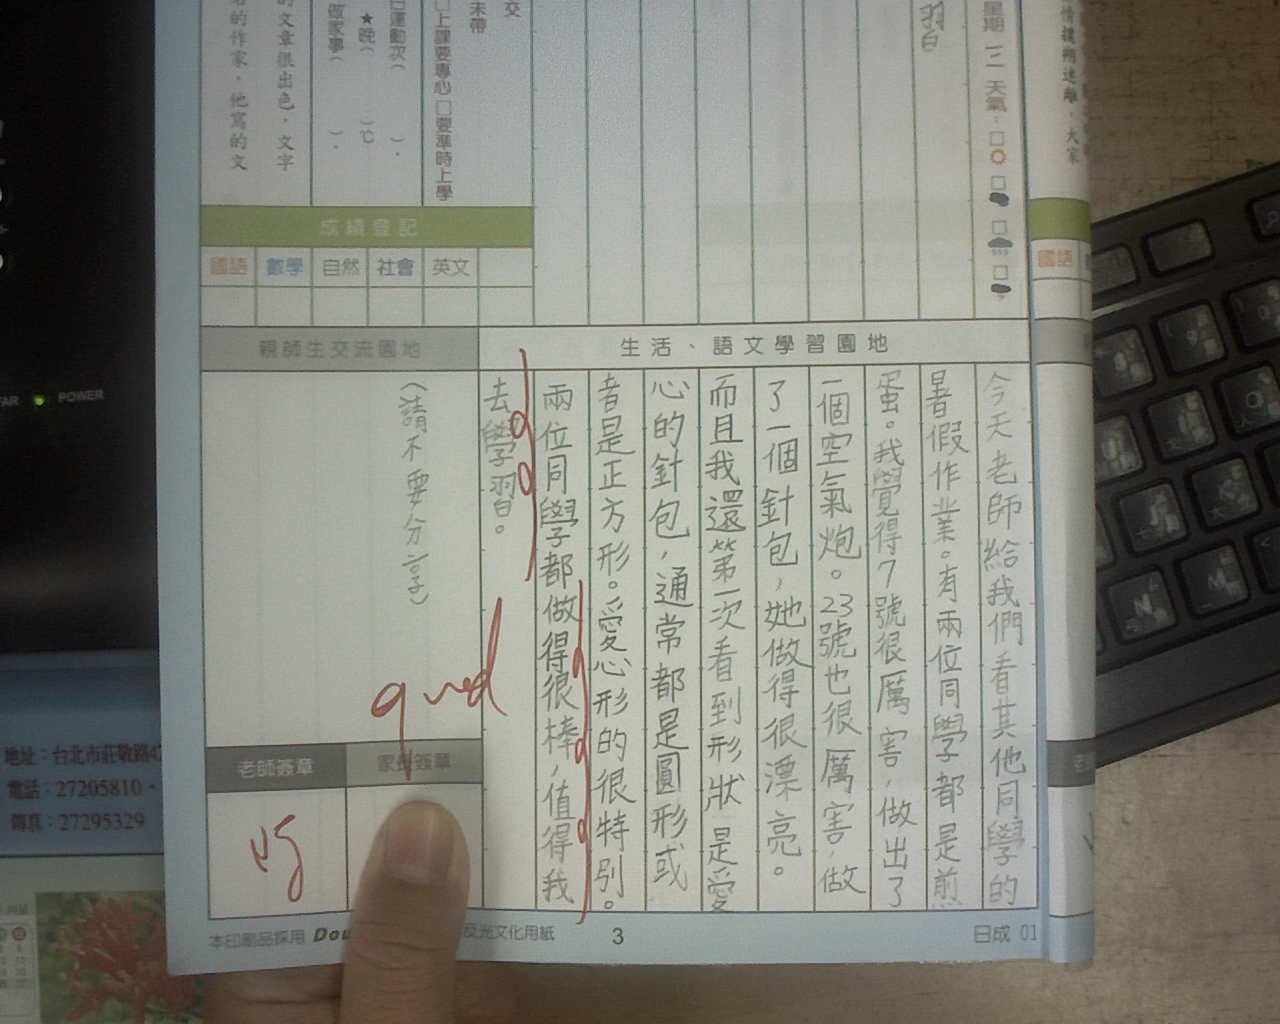 生活、語文學習園地
今天老師給我們看其他同學的
暑假作業。有兩位同學都是煎
蛋。我覺得7號很厲害,做出了
一個空氣炮。23號也很厲害,做
了一個針包,她做得很漂亮。
而且我還第一次看到形狀是愛
心的針包,通常都是圓形或
者是正方形。愛心形的很特別。
兩位同學都做得很棒,值得我
去學習。
(請不要分享)
good
親師生交流園地
老師簽章
家長簽章
星期 三 天氣:
習
交
未帶
□上課要專心 □要準時上學
日運動次( ).
★晚( )℃
做家事( ).
的文章很出色,文字
名的作家,他寫的文
成績登記
國語 數學 自然 社會 英文
情撲朔迷離,大家
國語
本印刷品採用 Dou
反光文化用紙
3
日成 01
FAR
POWER
地址:台北市莊敬路4
電話:27205810、
傳真:27295329